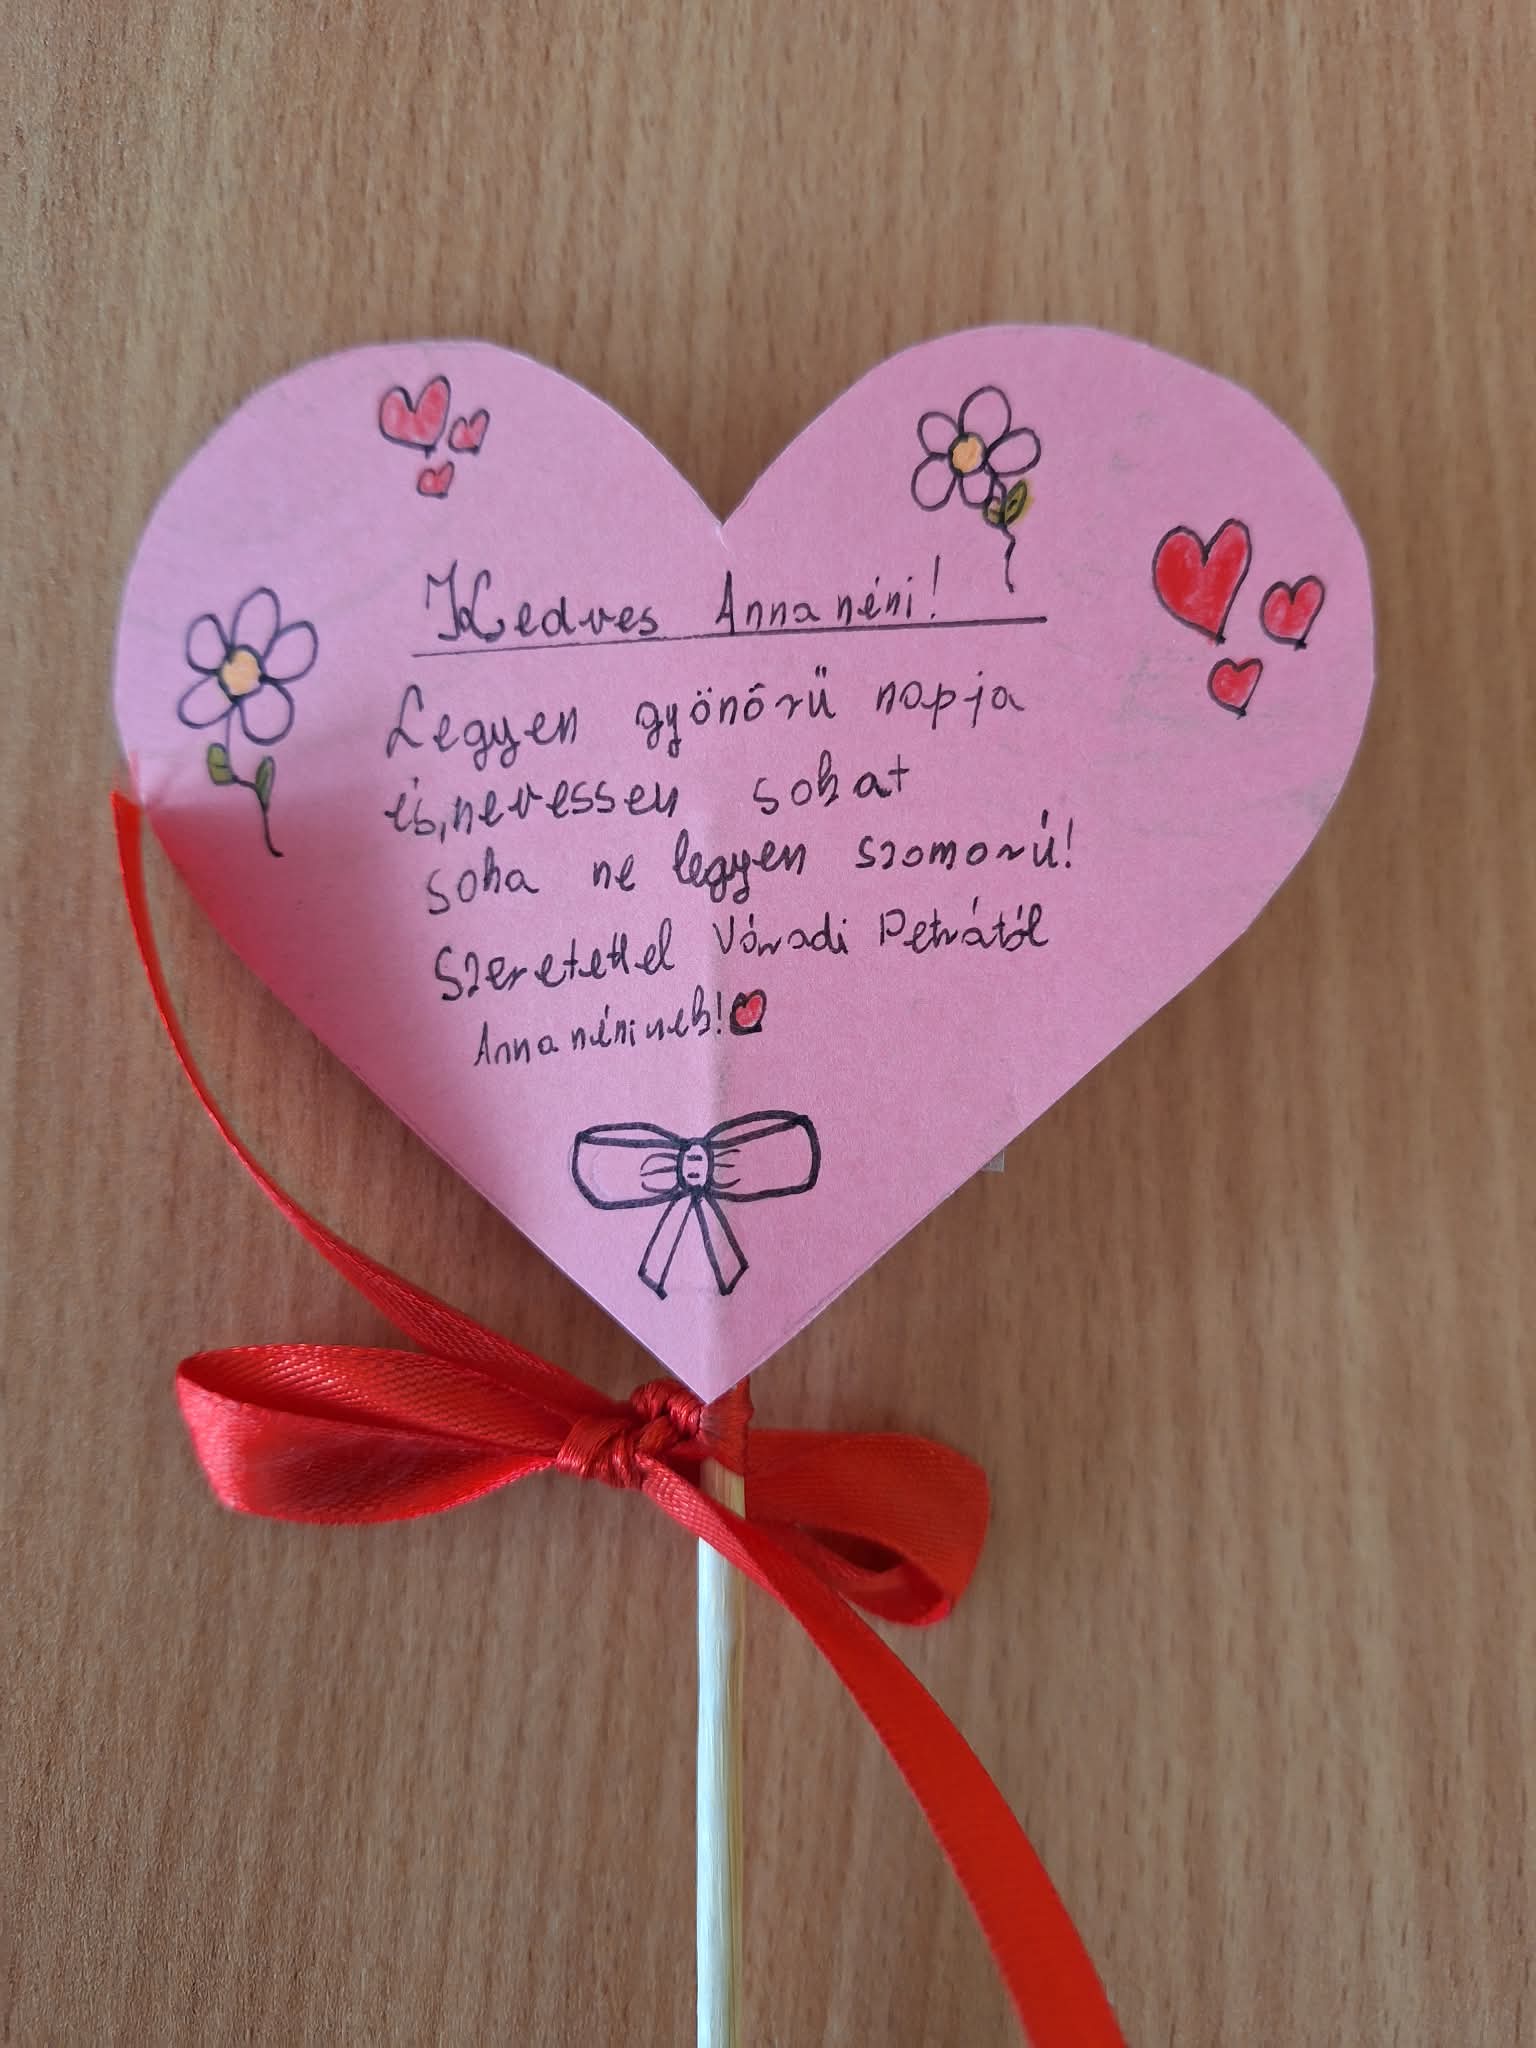 Kedves Anna néni!
Legyen gyönőrü napja
és,nevessen sokat
soha ne legyen szomorú!
Szeretettel Váradi Petrától
Anna néninek!